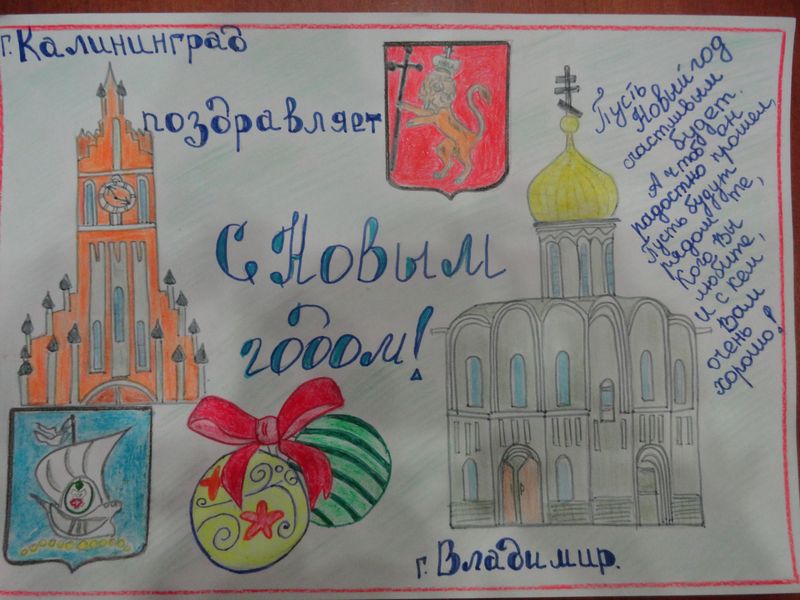 г. Калининград
поздравляет
С Новым
годом!
г. Владимир.
Пусть
Новый год
счастливым
будет.
А чтоб он
радостно прошел,
Пусть будут
рядом те,
Кого вы
любите,
и с кем
вам
очень
хорошо!